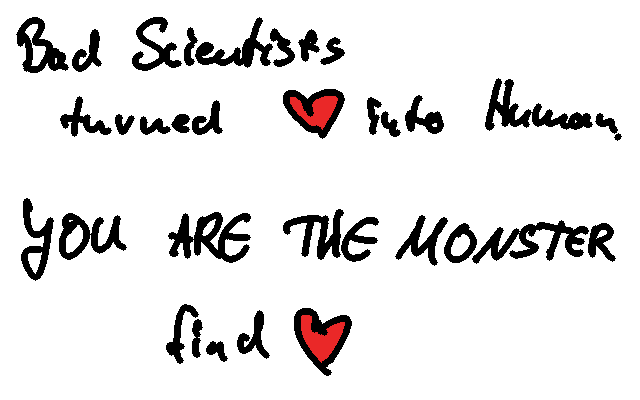 Bad Scientists
turned ❤ into Human.
YOU ARE THE MONSTER
find ❤